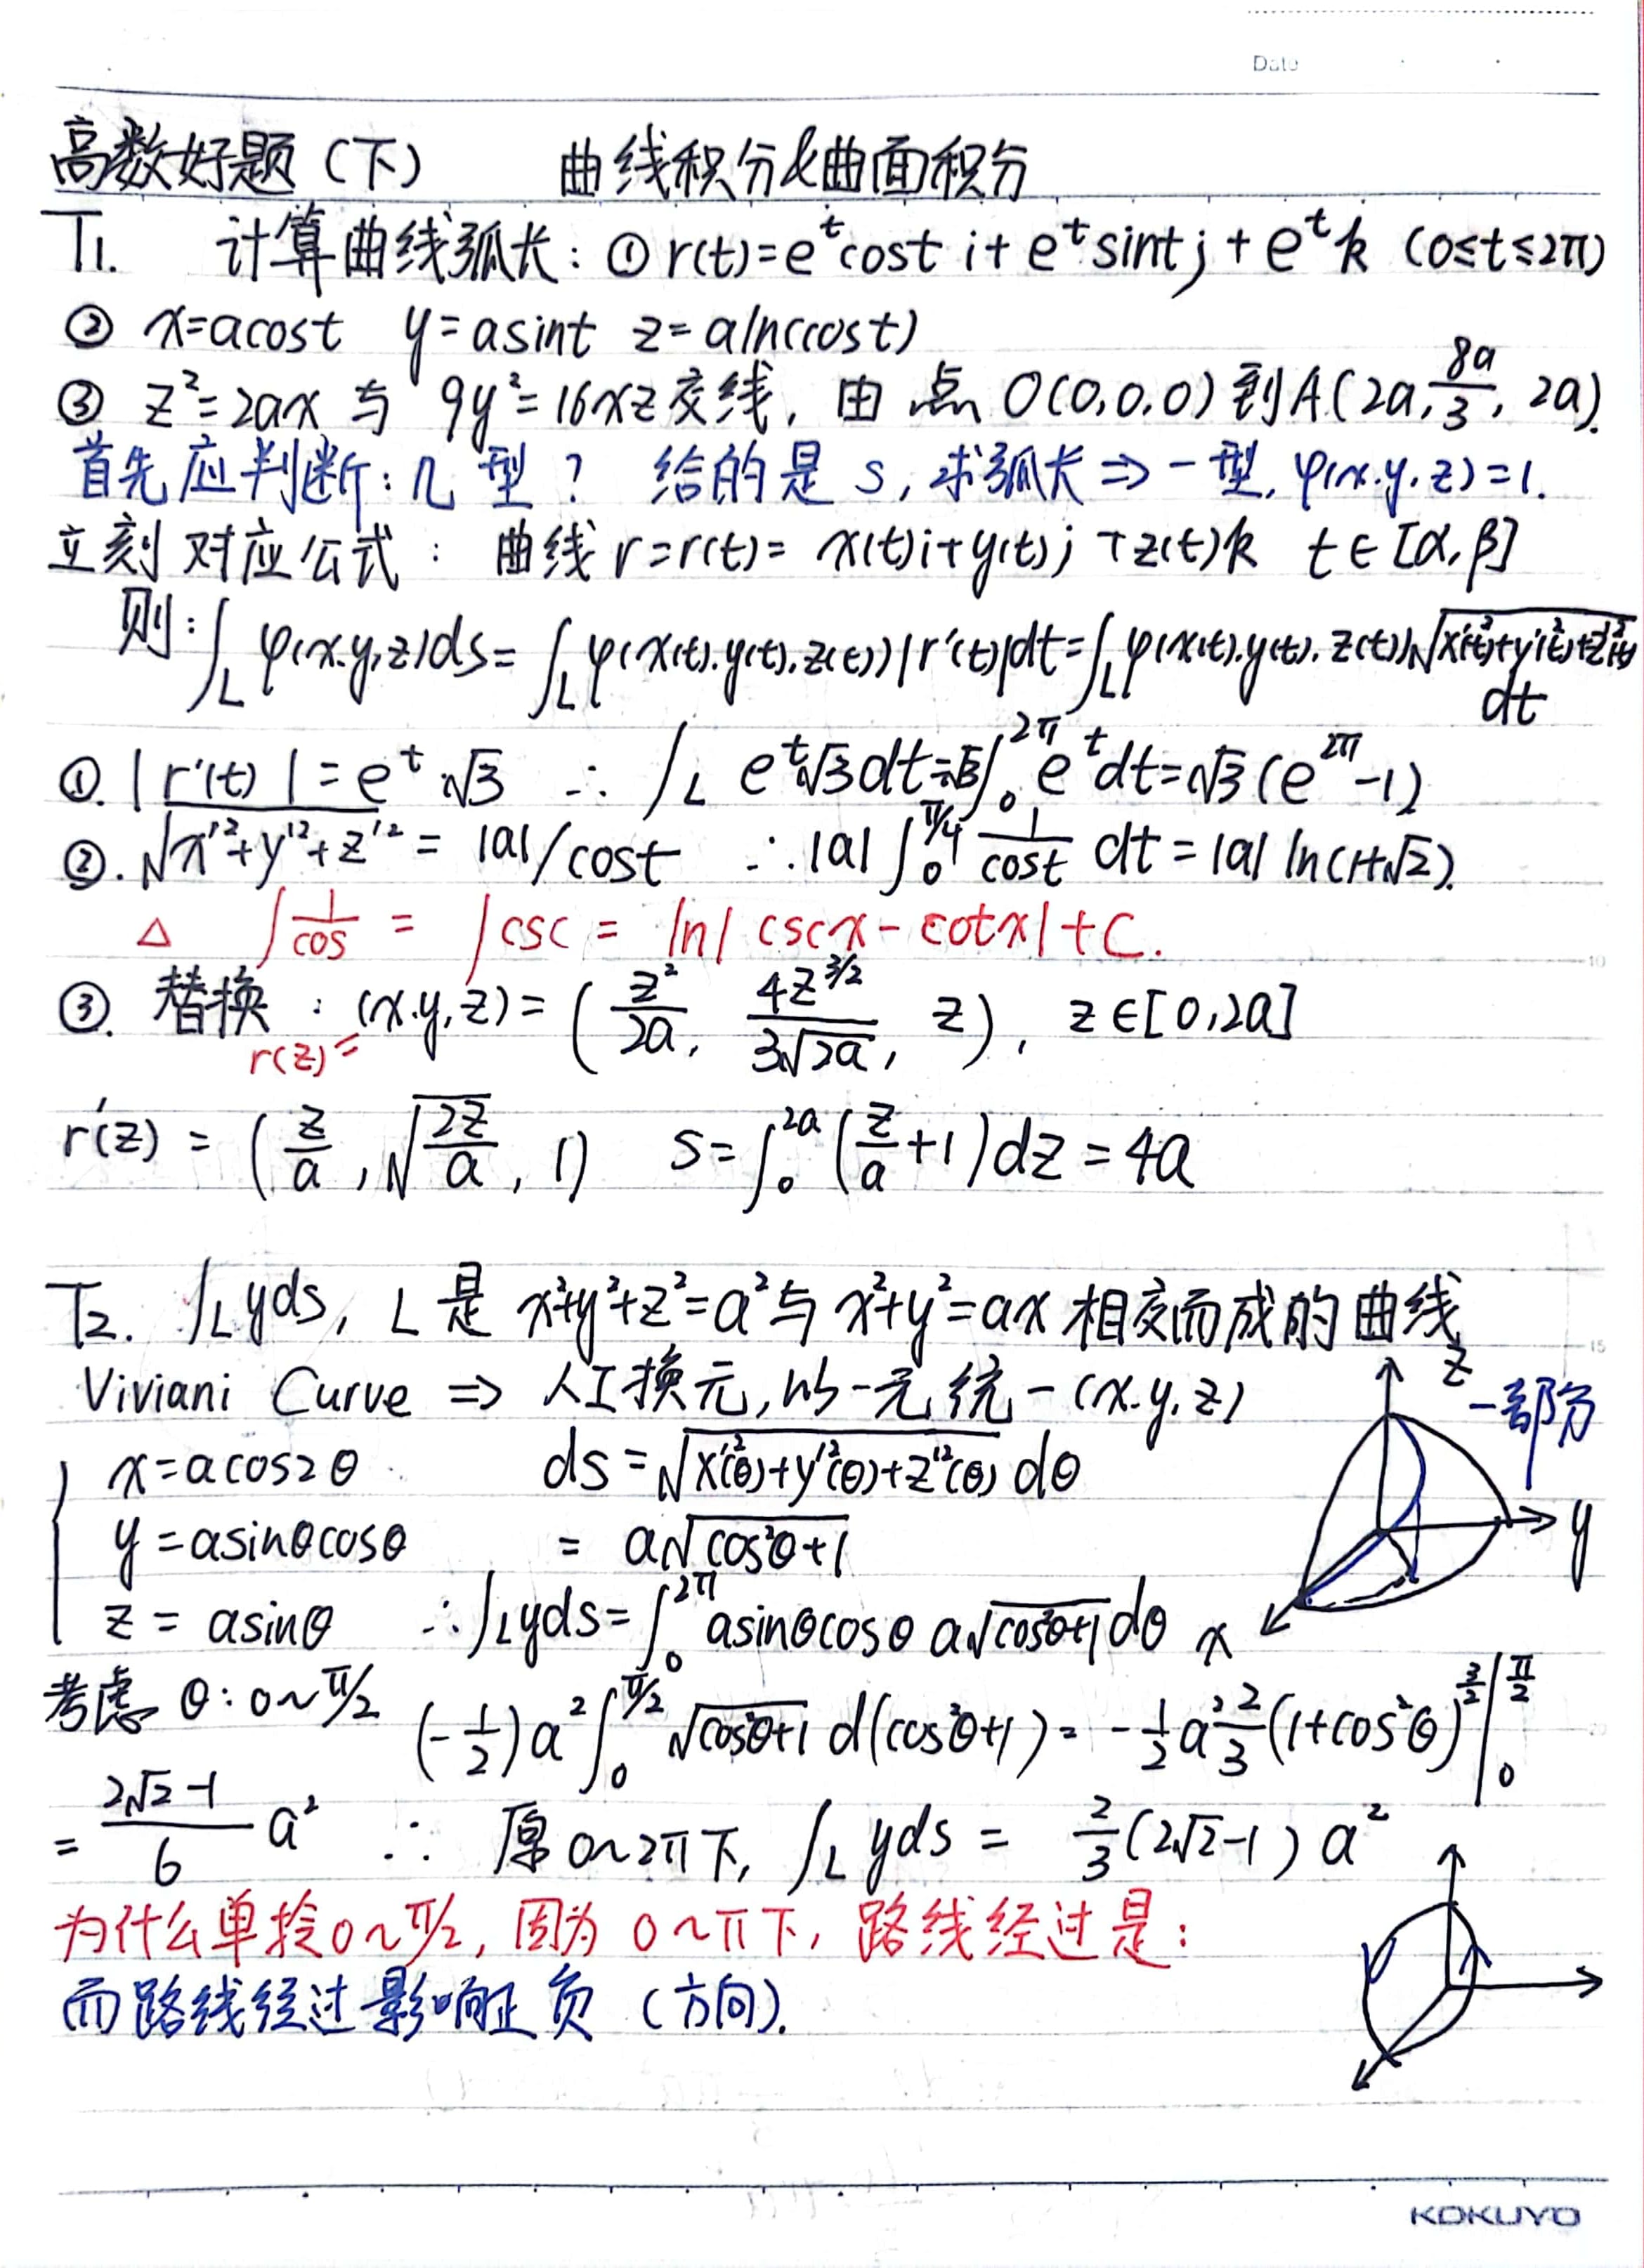 Date
高数好题（下） 曲线积分&曲面积分
T1. 计算曲线弧长：① r(t)=e^t cost i + e^t sint j + e^t k (0≤t≤2π)
② x=acost y=asint z=aln(cost)
③ z²=2ax 与 9y²=16xz交线，由 点 O(0,0,0)到A(2a, 8a/3, 2a).
首先应判断：几型？ 给的是 s，求弧长⇒一型, φ(x.y.z)=1.
立刻对应公式： 曲线 r=r(t)= x(t)i+y(t)j+z(t)k t∈[α,β]
则：∫_L φ(x.y,z)ds=∫_L φ(x(t).y(t).z(t))|r'(t)|dt=∫_L φ(x(t).y(t).z(t))√(x'²(t)+y'²(t)+z'²(t))
dt
①. |r'(t)|=e^t √3 ∴ ∫_L e^t √3dt=√3∫_0^{2π} e^t dt=√3(e^{2π}-1)
②. √(x'²+y'²+z'²) = |a|/cost ∴|a|∫_0^{π/4} 1/cost dt = |a| ln(1+√2).
△ ∫1/cos = ∫csc = ln|cscx-cotx|+C.
③. 替换：(x.y,z)=(z²/2a, 4z^{3/2}/3√2a, z), z∈[0,2a]
r(z)=
r'(z) = (z/a, √(2z/a), 1) S=∫_0^{2a}(z/a+1)dz=4a
T2. ∫_L yds, L 是 x²+y²+z²=a²与x²+y²=ax 相交而成的曲线
Viviani Curve ⇒ 人工换元,以一元统一(x.y,z)
z
一部分
x=acos2θ ds=√(x'²(θ)+y'²(θ)+z'²(θ)) dθ
y=asinθcosθ = a√(cos²θ+1)
y
z = asinθ ∴∫_L yds=∫_0^{2π} asinθcosθ a√(cos²θ+1)dθ
x
考虑 θ:0~π/2 (-1/2)a²∫_0^{π/2} √(cos²θ+1) d(cos²θ+1)= -1/2 a² 2/3 (1+cos²θ)^{3/2}|_0^{π/2}
= (2√2-1)/6 a² ∴ 原0~2π下, ∫_L yds = 2/3(2√2-1)a²
为什么单拎0~π/2, 因为 0~π下, 路线经过是：
而路线经过影响正负（方向）.
KOKUYO